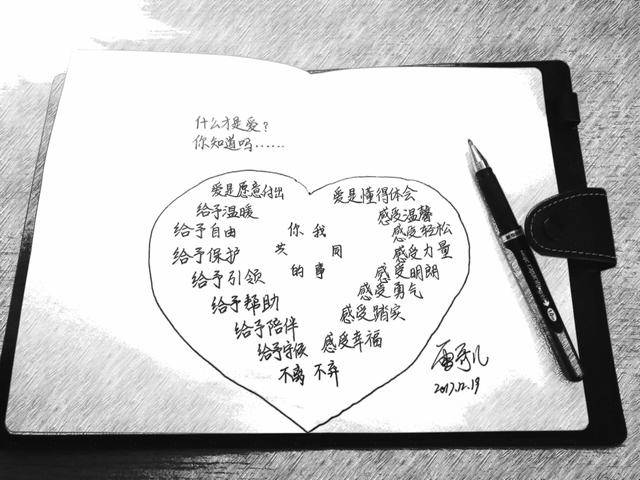 什么才是爱？
你知道吗……
爱是愿意付出
给予温暖
给予自由
给予保护
给予引领
给予帮助
给予陪伴
给予守候
爱是懂得体会
感受温馨
感受轻松
感受力量
感受明朗
感受勇气
感受踏实
感受幸福
你我
共同
的事
不离不弃
2017.12.19